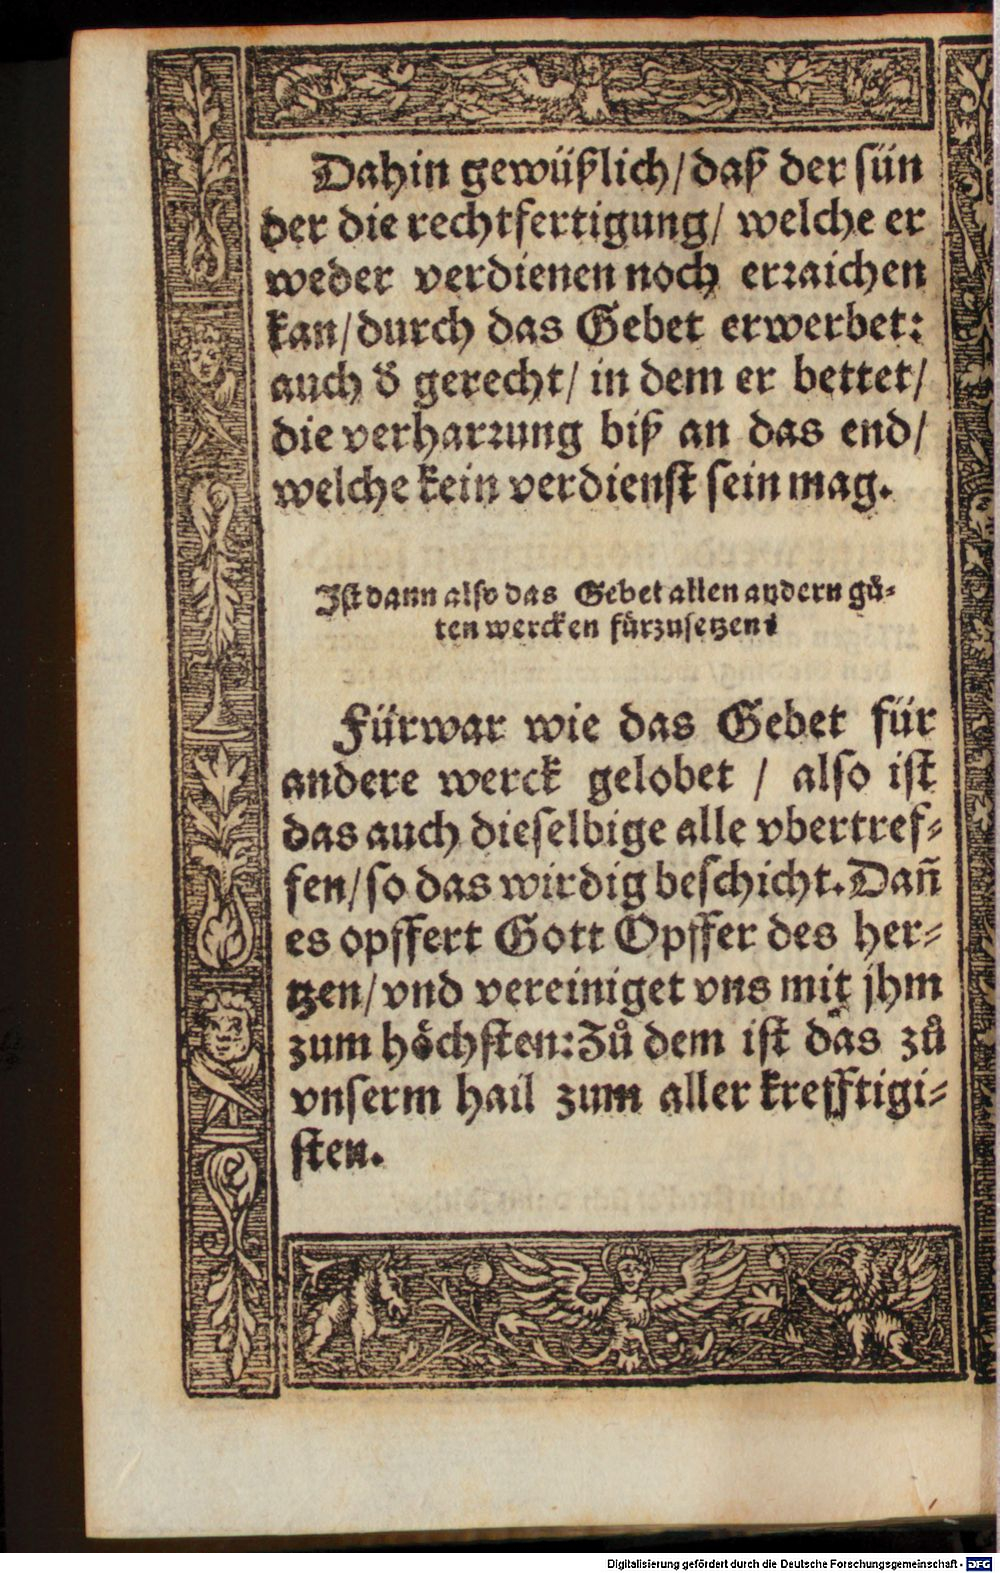 Dahin gewüßlich/ daß der sün
der die rechtfertigung/ welche er
weder verdienen noch erꝛaichen
kan/ durch das Gebet erwerbet:
auch d̄ gerecht/ in dem er bettet/
die verharꝛung biß an das end/
welche kein verdienst sein mag.
Jst dann also das Gebet allen andern gů-
ten wercken fürzusetzen?
Fürwar wie das Gebet für
andere werck gelobet / also ist
das auch dieselbige alle vbertref-
fen/ so das wirdig beschicht. Dañ
es opffert Gott Opffer des her-
tzen/ vnd vereiniget vns mit jhm
zum hőchsten: Zů dem ist das zů
vnserm hail zum aller krefftigi-
sten.
Digitalisierung gefördert durch die Deutsche Forschungsgemeinschaft - DFG